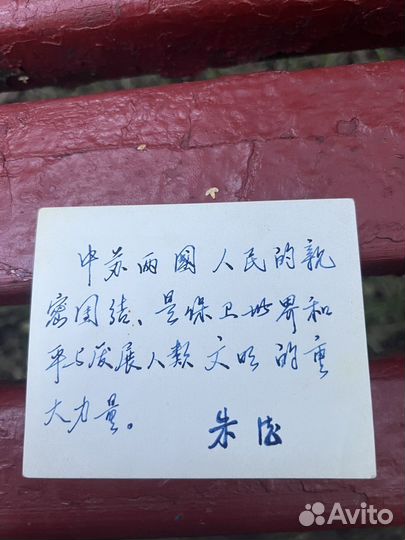 中苏两國人民的親
密团结、是保卫世界和
平与发展人類文明的重
大力量。
朱德
Avito